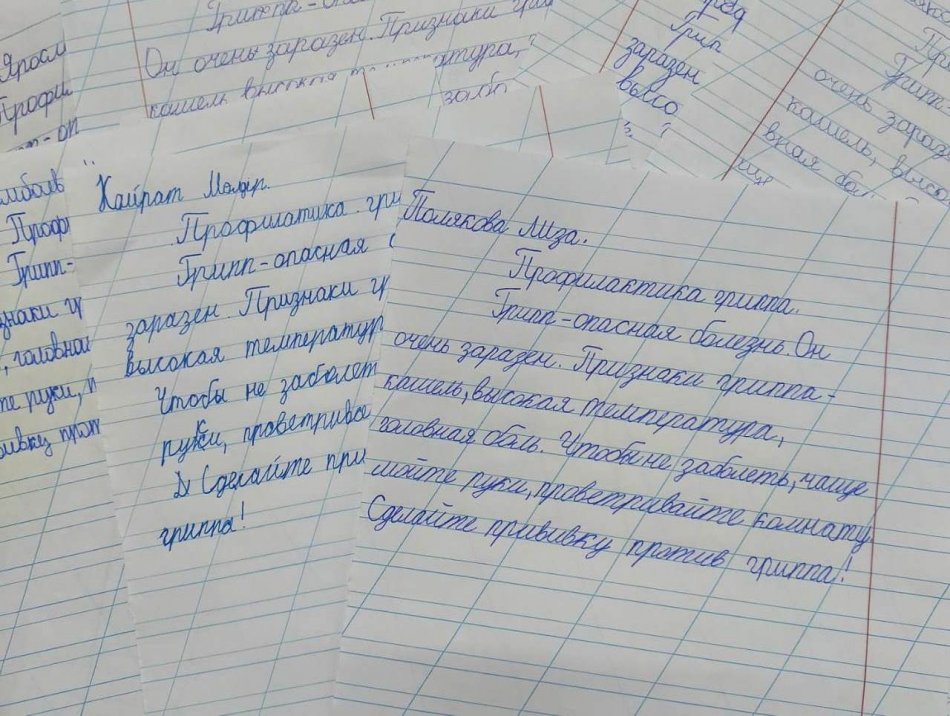 Грипп-опа
Он очень заразен. Признаки гри
кашель высокая
забо
Яросл
Профил
Грип
заразен
высо
очень зараз
кашель, высо
Проф
Грипп-
знаки гр
головной
те руки,
Кайрат
Профилатика гри
Грипп-опасная
заразен. Признаки гр
высокая температур
Чтобы не заболет
руки, проветривае
Сделайте при
гриппа!
Полякова Лиза.
Профилактика гриппа.
Грипп-опасная болезнь. Он
очень заразен. Признаки гриппа-
кашель, высокая температура,
головная боль. Чтобы не заболеть, чаще
мойте руки, проветривайте комнату.
Сделайте прививку против гриппа!